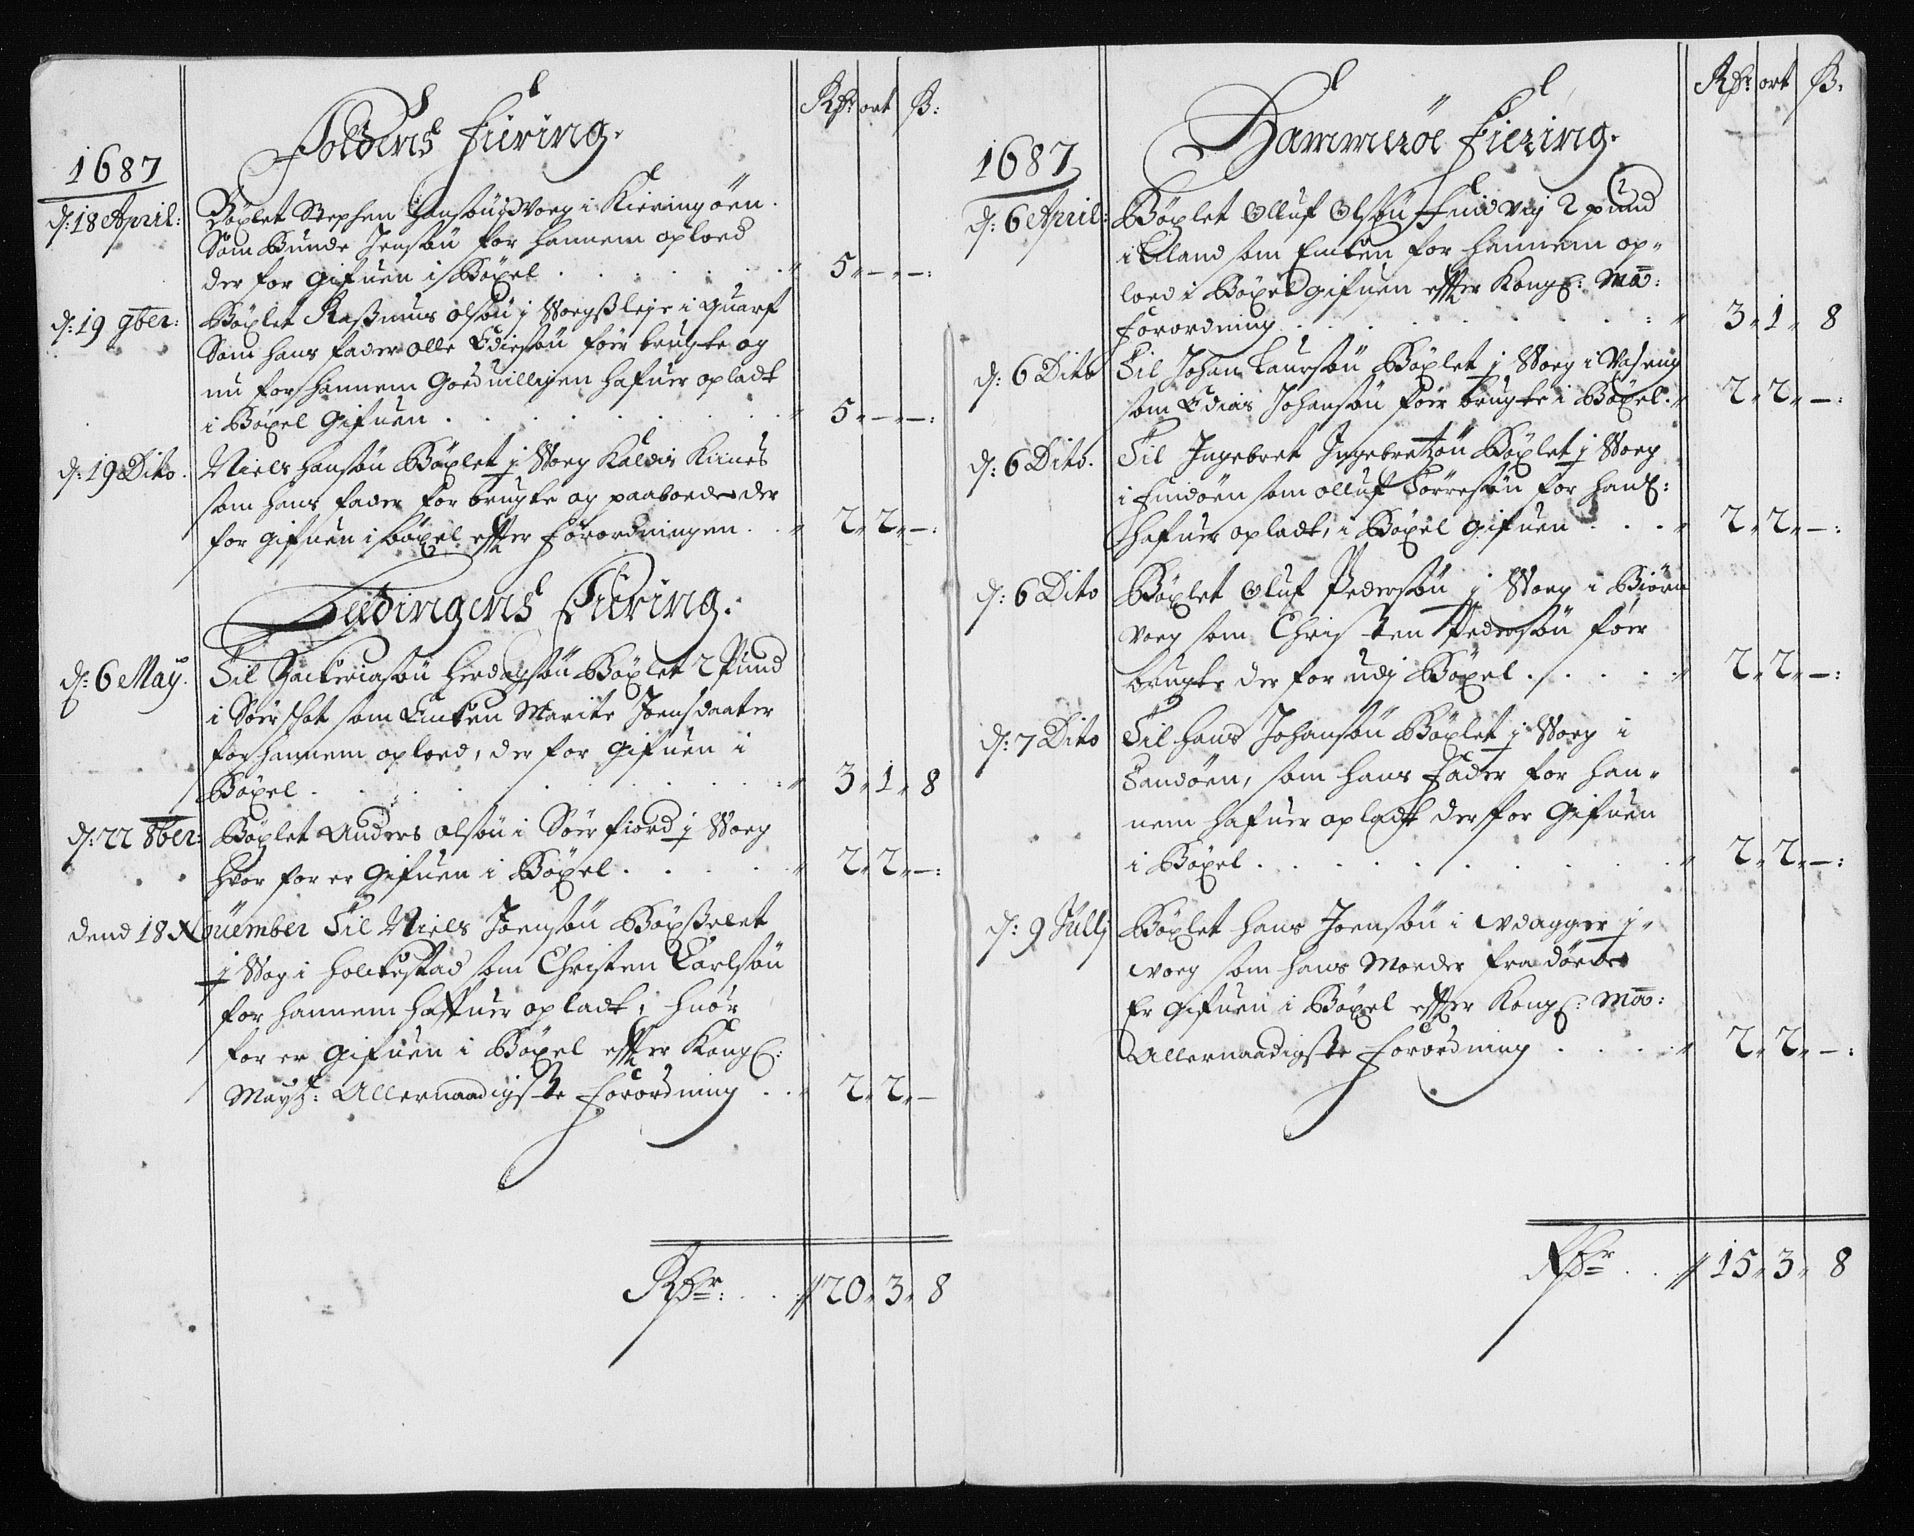 Rdr ort ß:
Foldens Fiering.
1687
d: 18 April: Böxlet Stephen Hansøn Woeg i Kieringöen.
Som Bunde Jensøn for hannem oploed
der for gifuen i Böxel . . . . . 5 " - " - :
d: 19 9ber: Böxlet Raßmus Olsøn j Woegßleje i Quarf
Som hans fader Olle Ediesøn för brugte og
nu for hannem goedvilligen hafuer opladt
i Böxel Gifuen . . . . . 5 " - " - :
d: 19 Dito. Niels Hansøn Böxlet j Woeg Kaldis Kiines
som hans fader for brugte og paaboede der
for gifuen i böxel effter forordningen . . 2 " 2 " - :
Lødingens Fiering.
d: 6 May. Til Zackeriasøn Böxlet 2 Pund
i som Encken Marite Joensdaater
for hannem oploed, der for Gifuen i
Böxel . . . . . 3 " 1 " 8
d: 22 8ber: Böxlet Anders Olsøn i Söerfiord j Woeg
hvor for er Gifuen i Böxel . . . . 2 " 2 " - :
dend 18 November Til Niels Joensøn Böxßelet
j Wog i Holckestad som Christen Carlsøn
for hannem haffuer opladt, huor
for er Gifuen i Böxel effter Kongl:
Mayt: Allernaadigste forordning . . 2 " 2 " -
Rdr: . . 20 " 3 " 8
Rdr: ort ß.
Hammeröe Fiering.
1687
d: 6 April: Böxlet Olluf Olsøn 2 pund
i Uland som Encken for hannem op"
loed i Böxel gifuen effter Kongl: May:
forordning . . . . . 3 " 1 " 8
d: 6 Dito Til Johan Laursøn Böxlet j Woeg i
som Edias Johansøn för brugte i Böxel. 2 " 2 " - :
d: 6 Dito. Til Ingebret Ingebretzøn Böxlet j Woeg
i Findöen som Olluf Torresøn for hanl:
hafuer opladt, i Böxel Gifuen . . . 2 " 2 " - :
d: 6 Dito Böxlet Oluf Pedersøn j Woeg i Biörn
Woeg som Christen Pedersøn för
brugte der for udj Böxel . . . . 2 " 2 " - :
d: 7 Dito Til Hans Johansøn Böxlet j Woeg i
Tandöen, som hans Fader for han"
nem hafuer opladt der for Gifuen
i Böxel . . . . . 2 " 2 " - :
d: 9 Julij Böxlet Hans Joensøn i j
woeg som hans Moeder fra döede
Er Gifuen i Böxel effter Kongl: May:
Allernaadigste forordning . . . . 2 " 2 " - :
Rdr . . 15 " 3 " 8